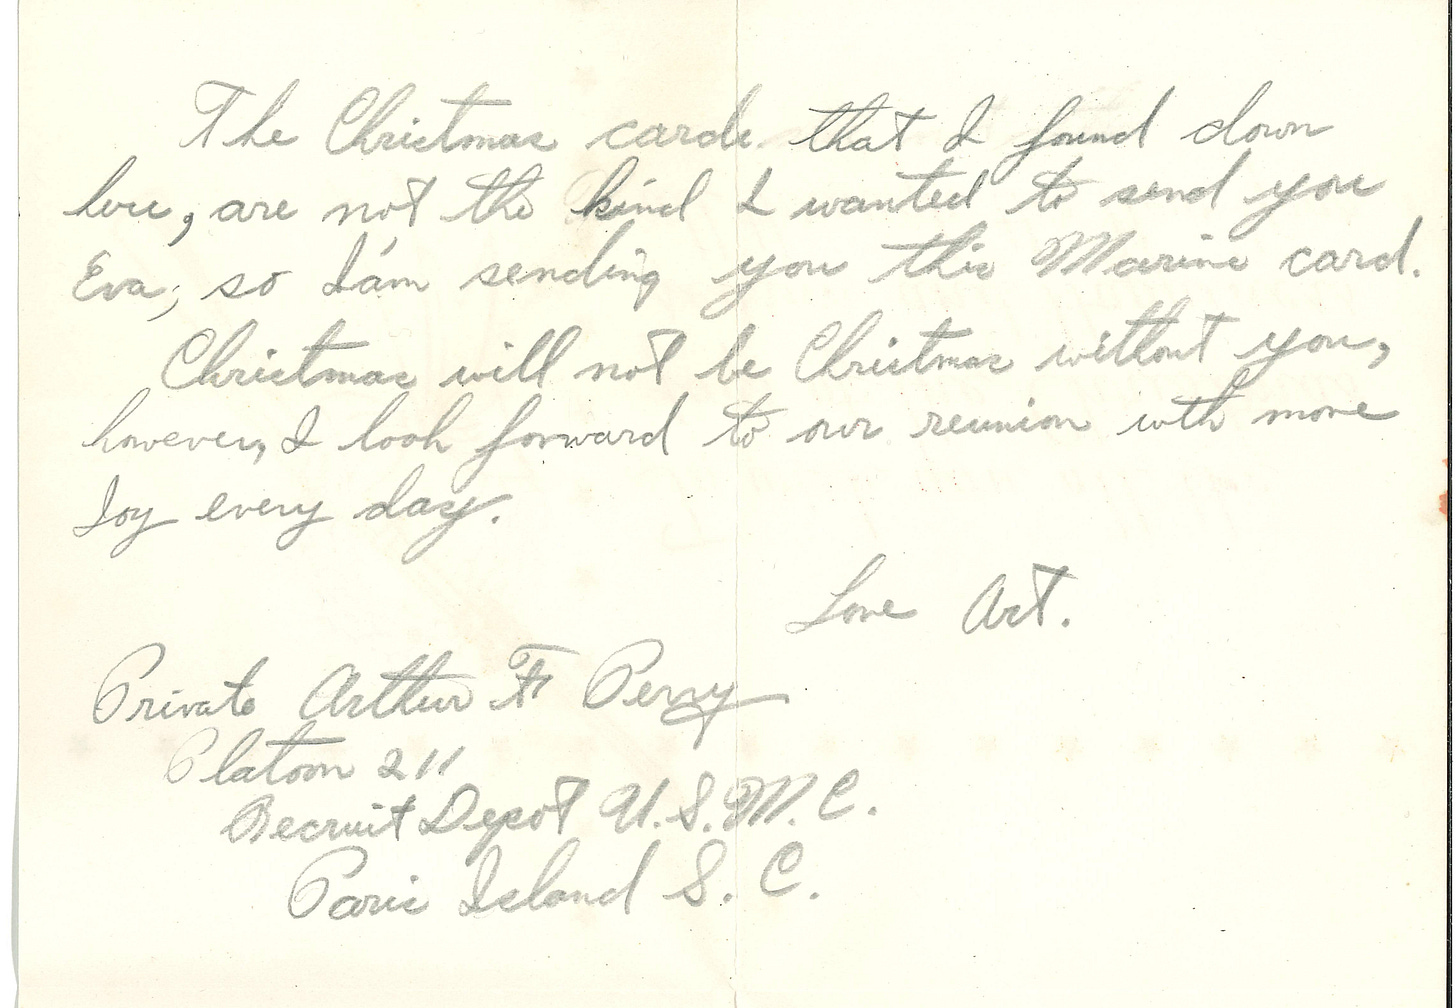 The Christmas cards that I found down
here, are not the kind I wanted to send you
Eva; so I'am sending you this Marine card.
Christmas will not be Christmas without you,
however, I look forward to our reunion with more
Joy every day.
Love Art.
Private Arthur F Perry
Platoon 211
Recruit Depot U.S.M.C.
Paris Island S.C.